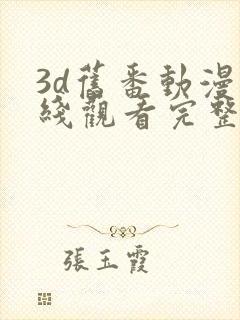 3d舊番動漫
綫觀看完整
張玉霞